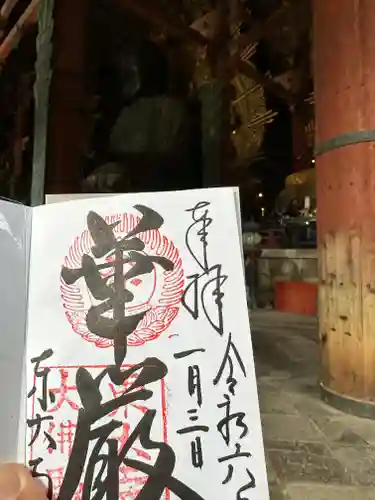 奉拝
令和六年
一月三日
華厳
東大寺